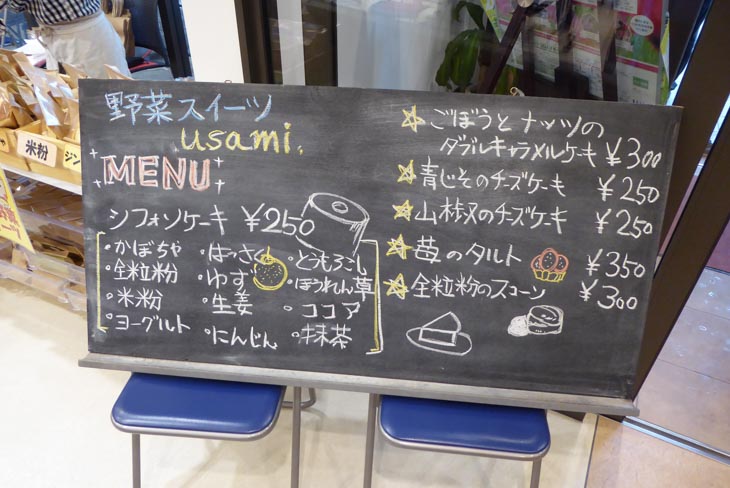 野菜スイーツ
usami.
MENU
シフォンケーキ ¥250
・かぼちゃ ・はっさく ・とうもろこし
・全粒粉 ・ゆず ・ほうれん草
・米粉 ・生姜 ・ココア
・ヨーグルト ・にんじん ・抹茶
☆ごぼうとナッツの
ダブルキャラメルケーキ ¥300
☆青じそのチーズケーキ ¥250
☆山椒のチーズケーキ ¥250
☆苺のタルト ¥350
☆全粒粉のスコーン ¥300
米粉